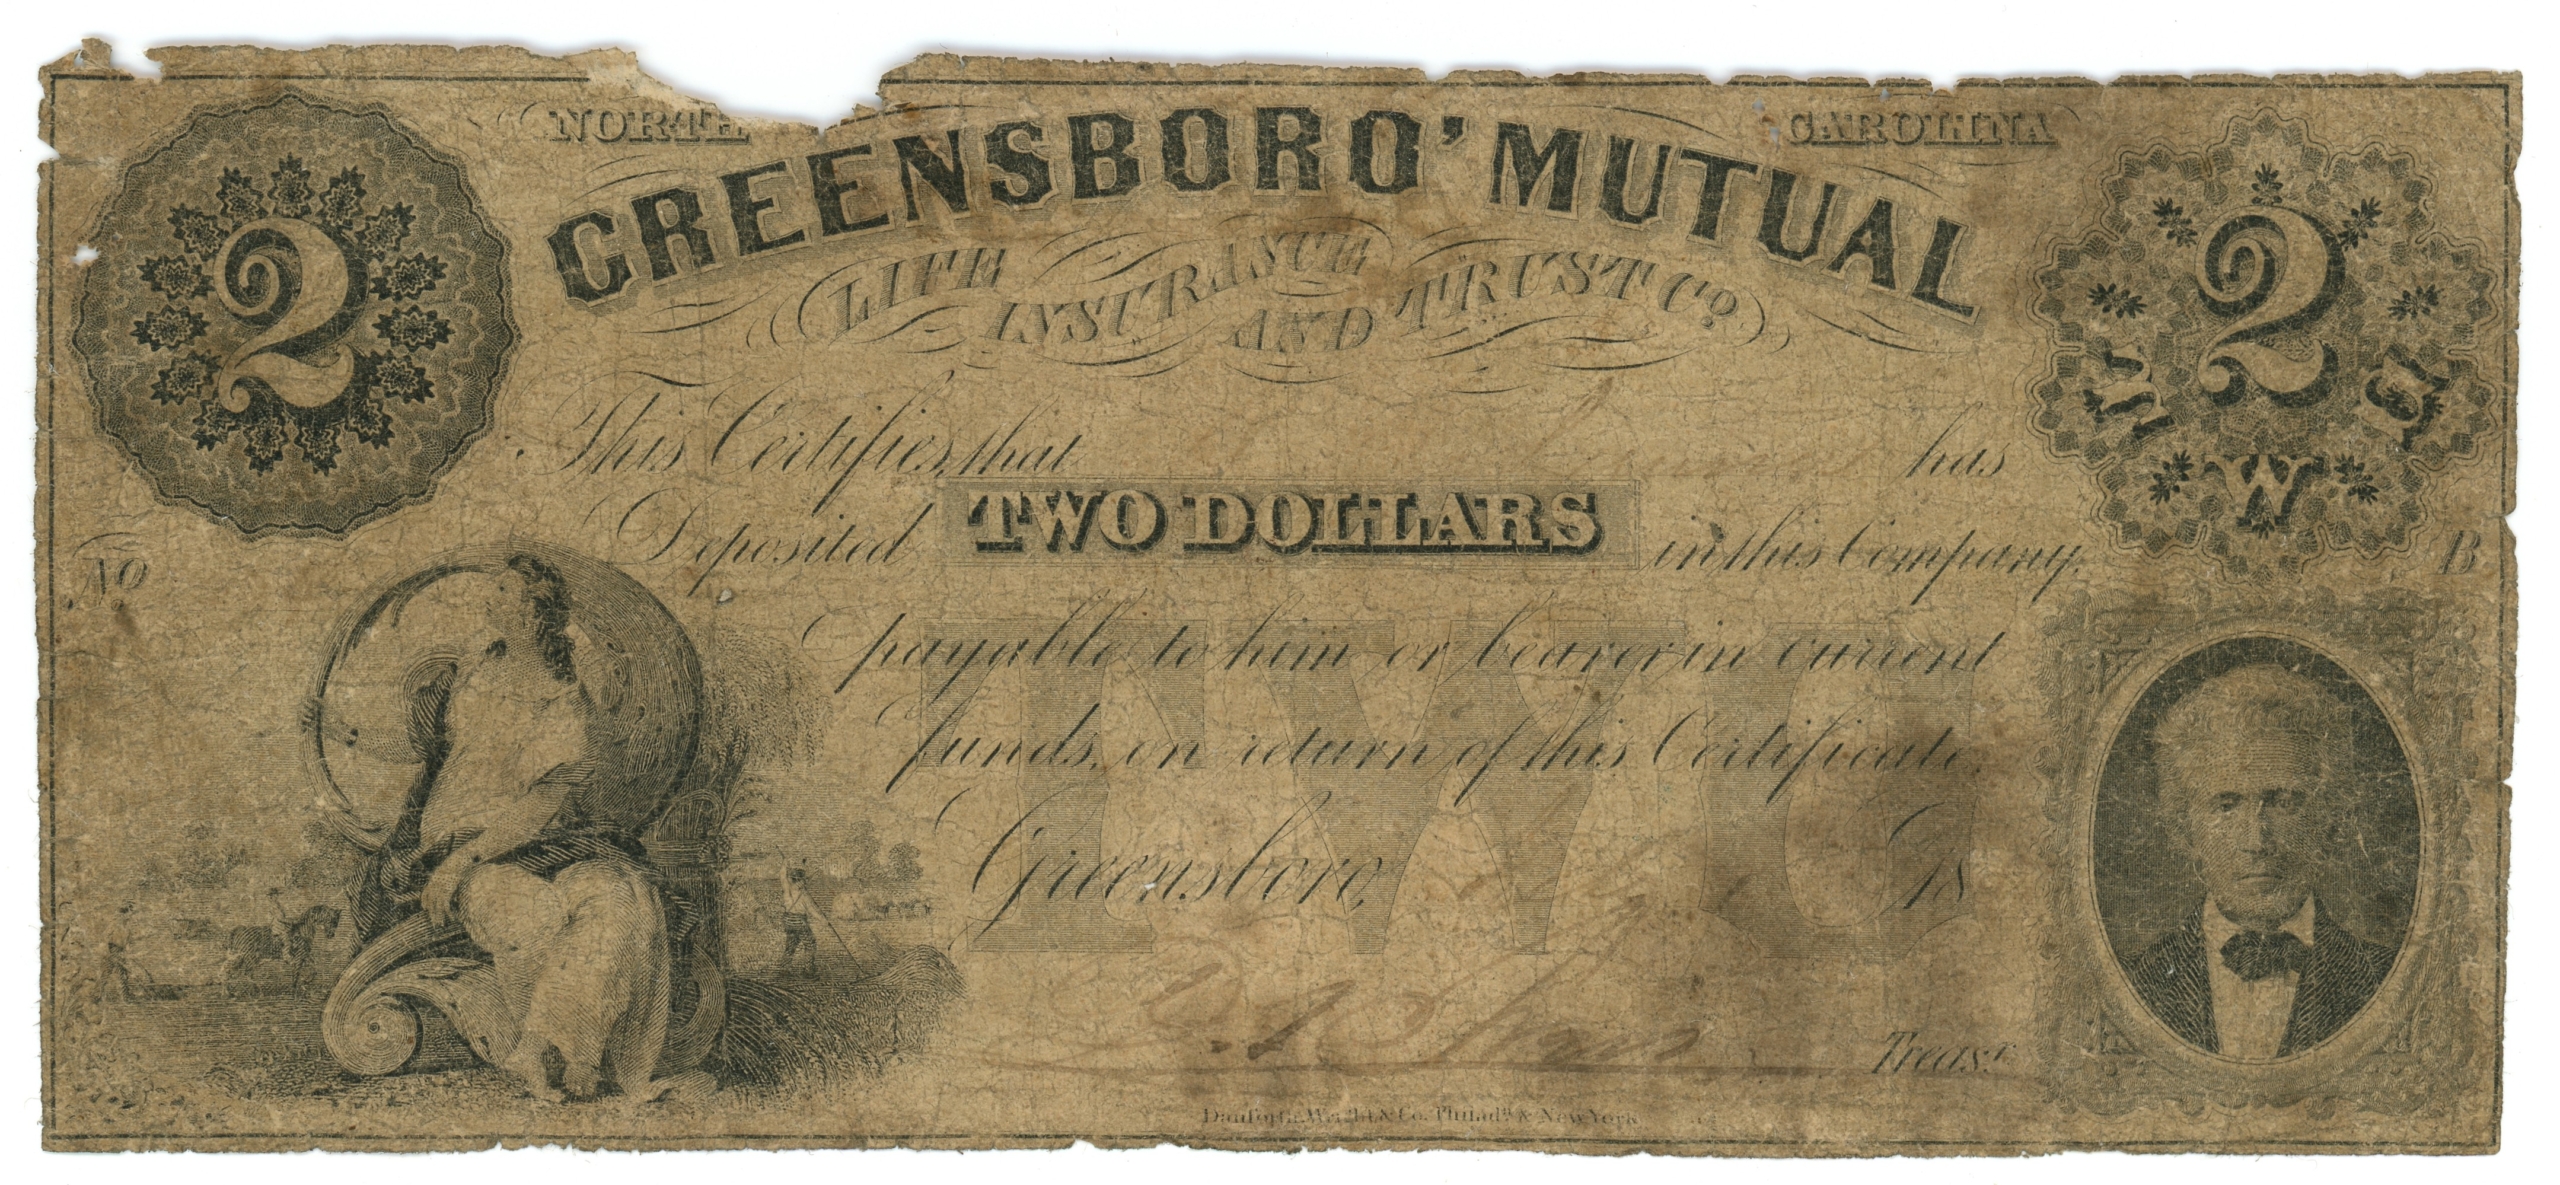 2
NORTH CAROLINA
GREENSBORO' MUTUAL
LIFE INSURANCE AND TRUST Co.
2
TWO
This Certifies, that has
Deposited TWO DOLLARS in this Company,
No B
payable to him or bearer in current
funds, on return of this Certificate,
TWO
Greensboro, 18
Treasr.
Danforth, Wright & Co. Philada. & New York